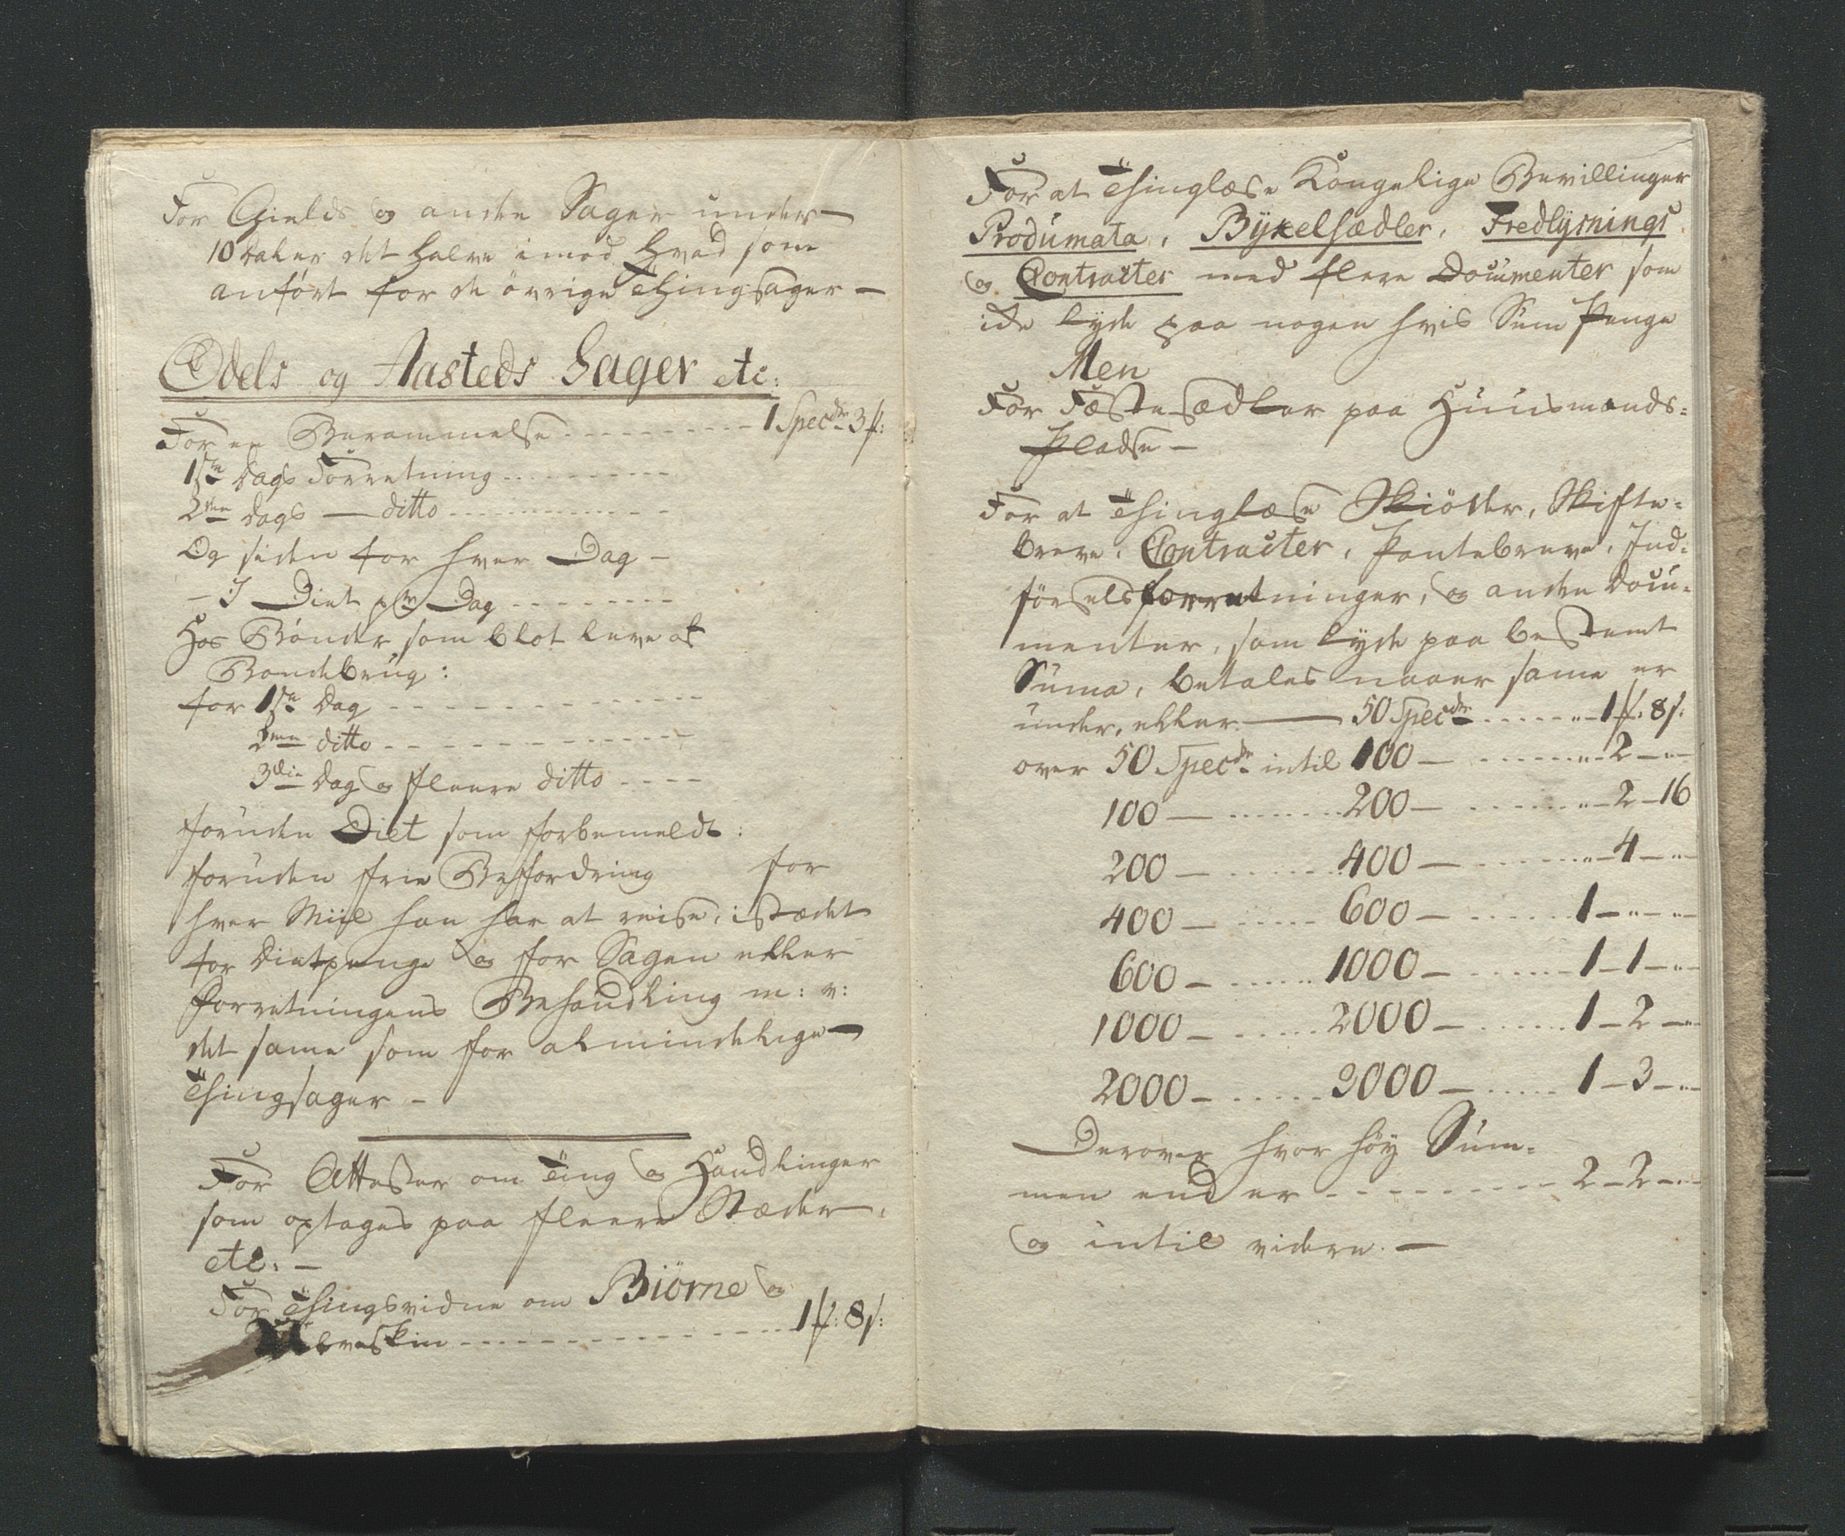 For Gields og andre Sager under
10 Daler det halve imod hvad som
anført for de øvrige Thingsager —
Odels og Aasteds Sager etc:
For en Berammelse - - - - 1 Specdr 3 f:
1ste Dags Forretning - - - -
2den Dags — ditto - - - -
Og siden for hver Dag —
— I Diet pr Dag - - - -
Hos Bønder som blot leve af
Bondebrug:
for 1ste Dag - - - -
2den ditto - - - -
3die Dag og fleere ditto - - - -
foruden Diet som forbemeldt:
foruden frie Befordring for
hver Miil han har at reise, istædet
for Dietpenge og for Sagen eller
Forretningens Behandling m: v:
det same som for almindelige
Thingsager —
For Attester om Ting og Handlinger
som optages paa fleere Stæder,
etc: —
For Thingsvidne om Biørne og
Ulveskin - - - - 1 f: 8 s:
For at Thinglæse Kongelige Bevillinger
Produmata, Bÿxelsædler, Fredlÿsnings
og Contracter med flere Documenter som
ide lyde paa nogen hvis Sum Penge
Men
For Fæstesædler paa Huusmands=
Pladse —
For at Thinglæse Skiøder, Skifte=
breve, Contracter, Pantebreve, Ind=
førselsforretninger, og andre Docu=
menter, som lyde paa bestemt
Suma, betales naaer same er
under, eller — 50 Specdr - - - - " — 1 f: 8 s:
over 50 Specdr intil 100 — - - - - " — 2 — "
100 — - - - - 200 — - - - - " — 2 — 16
200 — - - - - 400 — - - - - " — 4 — "
400 — - - - - 600 — - - - - 1 — " — "
600 — - - - - 1000 — - - - - 1 — 1 — "
1000 — - - - - 2000 — - - - - 1 — 2 — "
2000 — - - - - 3000 — - - - - 1 — 3 — "
Derover hvor høy Sum=
men end er - - - - 2 — 2 — "
og intil videre. —